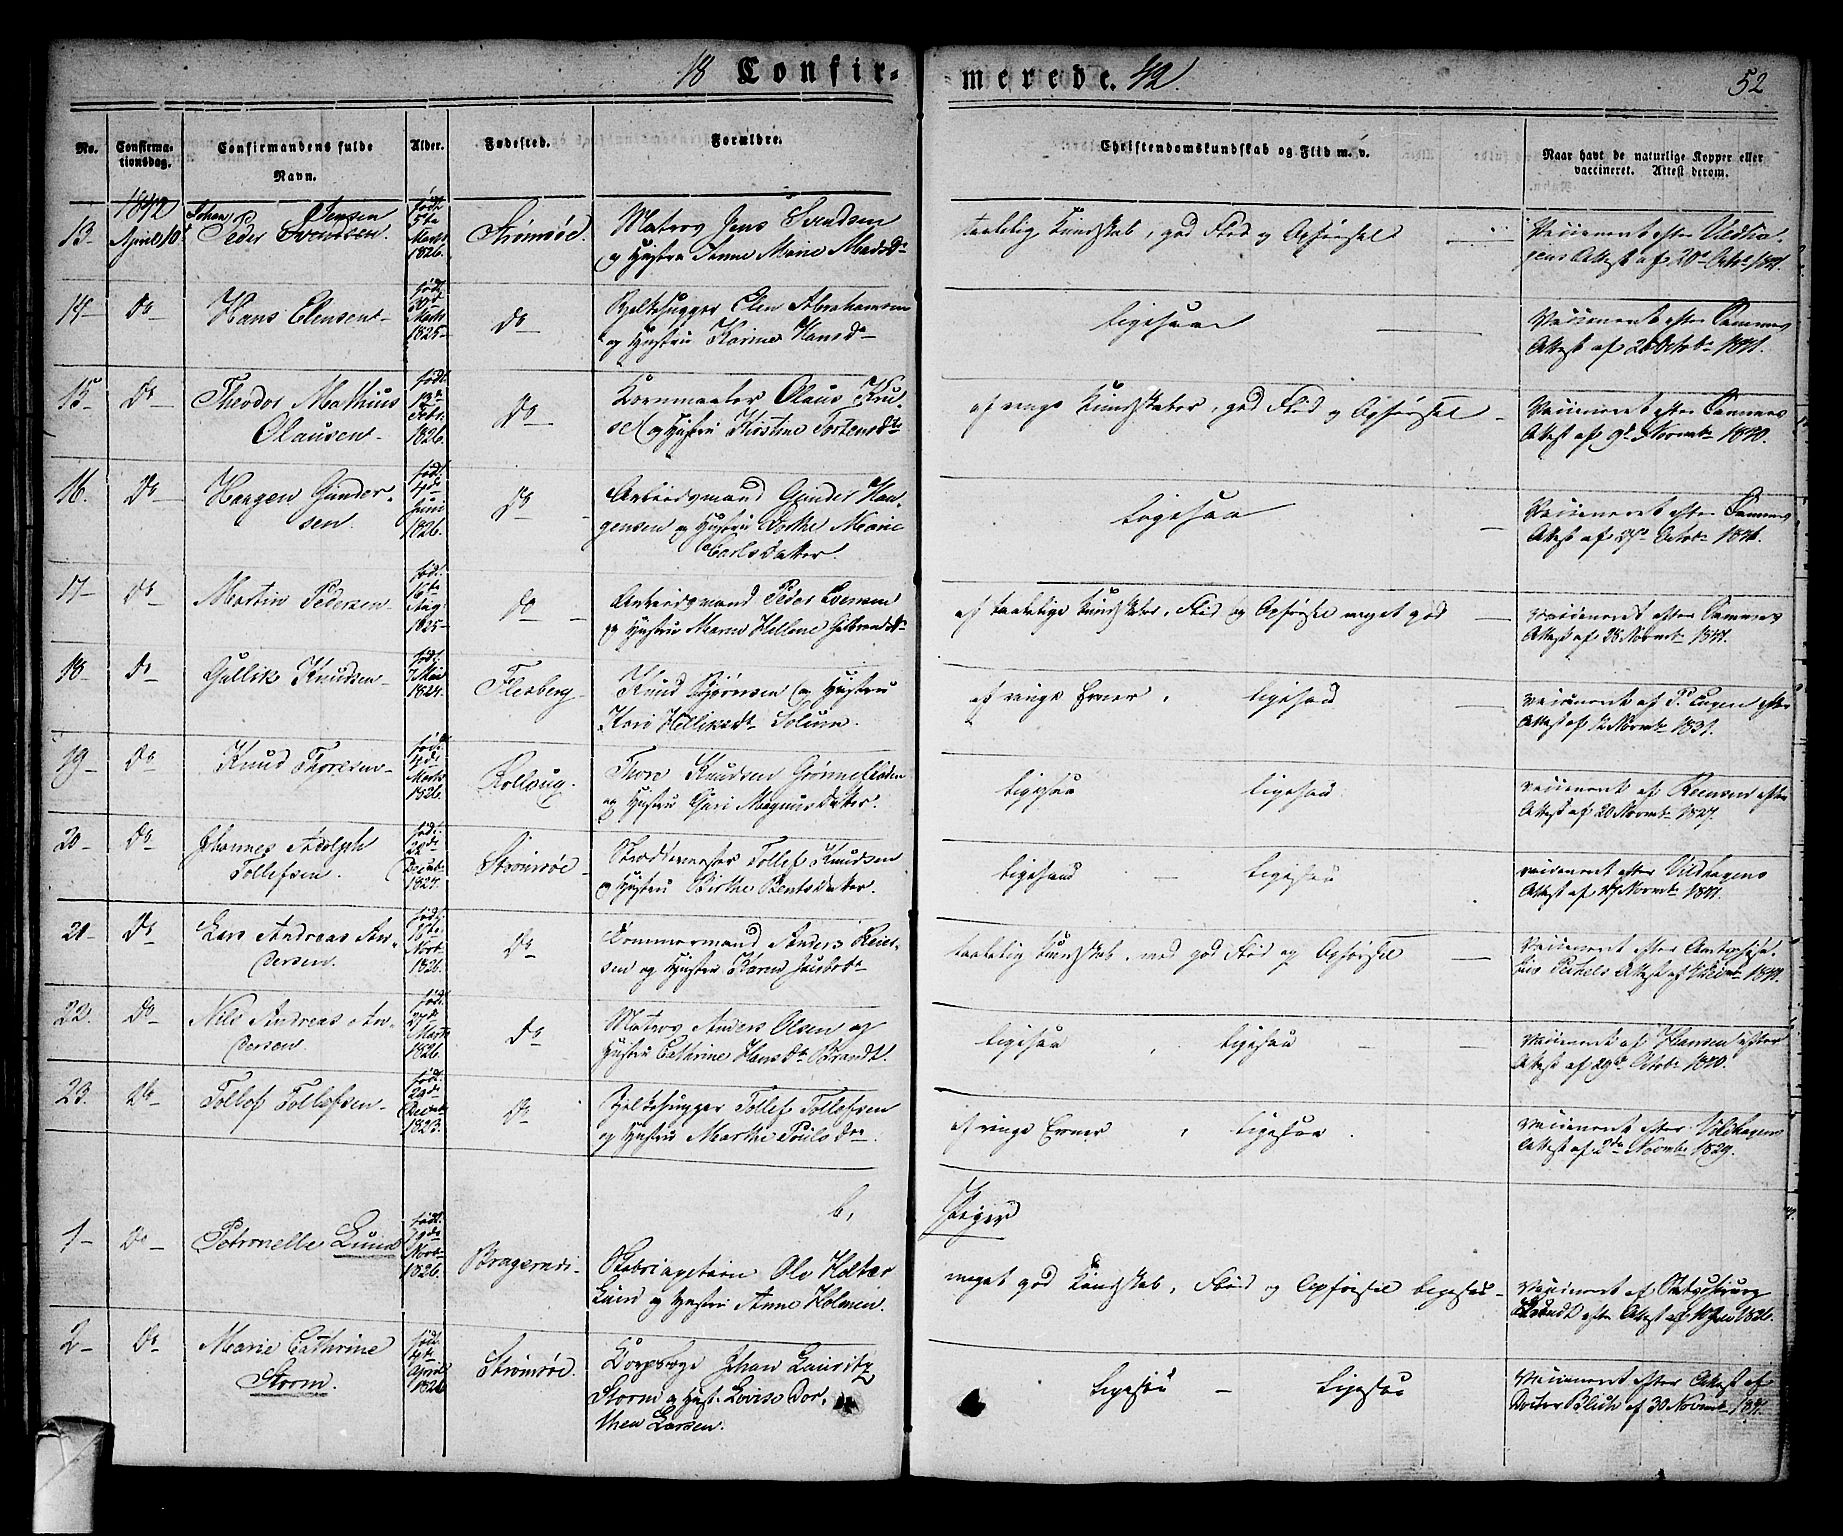 18 Confir-
merede. 42.
52
No.
Confirma-
tionsdag.
Confirmandens fulde
Navn.
Alder.
Fødested.
Forældre.
Christendomskundskab og Flid m. v.
Naar havt de naturlige Kopper eller
vaccineret. Attest derom.
1842
13-
April 10
Johan Jensen
Peder Svendsen.
født
5te
Marts
1826.
Strømsøe.
Matros Jens Svendsen
og Hustru Anne Marie Madsdr
taalelig Kundskab, god Flid og Opførsel
Vaccineret efter
Attest af 20de Octbr 1841.
14-
Do
Hans Elensen-
født
30te
Marts
1825-
Do
Bjelkehugger Elen Abrahamsen
og Hustru Karine Hansdr
ligesaa
Vaccineret efter Sammes
Attest af Octobr 1841.
15-
Do
Theodor Mathius
Olausen-
født
Febr.
1826.
Do
Kornmaaler Olaus
og Hustru Kirstine Tortensdtr
af ringe Kundskaber, god Flid og Opførsel
Vaccineret efter Sammes
Attest af 9de Novembr 1840.
16.
Do
Haagen Gunder-
sen.
født
4de
Juni
1826.
Do
Arbeidsmand Gunder Haa-
gensen og Hustru Dorthe Marie
Carlsdatter.
ligesaa
Vaccineret efter Sammes
Attest af Octobr 1841.
17-
Do
Martin Pedersen
født
16te
Aug.
1825-
Do
Arbeidsmand Peder Evensen
og Hustru Maren Hellene Gulbrandsdr
af taalelige Kundskaber, Flid og Opførsel meget god
Vaccineret efter Sammes
Attest af 28 Novembr 1841.
18-
Do
Gullik Knudsen-
født
7 Mai
1824.
Flesberg-
Knud Bjørnsen og Hustru
Kari Helliksdr Solum.
af ringe Evner, ligesaa
vaccineret af P. efter
Attest af 12 Novembr 1831.
19-
Do
Knud Thoresen-
født
4de
Marts
1826.
Rollaug.
Thore Knudsen Grønneflaten
og Hustru Guri Magnusdatter.
ligesaa ligesaa
vaccineret af efter
Attest af 20 Novembr 1827.
20-
Do
Johannes Adolph
Tollefsen.
født
22de
Decemb.
1824.
Strømsøe-
Tollef Knudsen
og Hustru Birthe Bentsdatter.
ligesaa - ligesaa
vaccineret efter Vildhagens
Attest af Novembr 1841.
21-
Do
Lars Andreas An-
dersen.
født
16te
Novbr
1826.
Do
Tømmermand Anders Reier-
sen og Hustru Karen Jacobsdr
taalelig Kundskab, med god Flid og Opførsel
Vaccineret efter
Attest af 1841.
22.
Do
Nils Andreas An-
dersen.
født
27de
Marts
1826.
Do
Matros Anders Olsen og
Hustru Cathrine Hansdr Brandt.
ligesaa, ligesaa
vaccineret af Hansen efter
Attest af 29de Octobr 1840.
23.
Do
Tollef Tollefsen-
født
29de
Decemb
1823.
Do
Bjelkehugger Tollef Tollefsen
og Hustru Marthe Poulsdtr.
af ringe Evner, ligesaa.
vaccineret efter Vildhagens
Attest af 2de Novembr 1829.
b, Piger
1-
Do-
Petronelle Lund
født
29de
Novbr
1826.
Bragernæs-
Fabriqueur Ole Holter
Lund og Hustru Anne Holmen.
meget god Kundskab, Flid og Opførsel ligesaa-
Vaccineret af
efter Attest af 1826.
2-
Do
Marie Cathrine
Storm.
født
4te
April
1826
Strømsøe.
Johan Lauritz
Storm og Hust. Lovise Dor-
thea Larsen.
ligesaa - ligesaa
Vaccineret efter Attest af
Doctor Blich af 30 Novembr 1841.